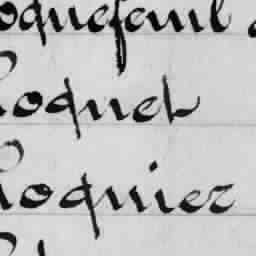 oquefeuil
Roquet
Roquier